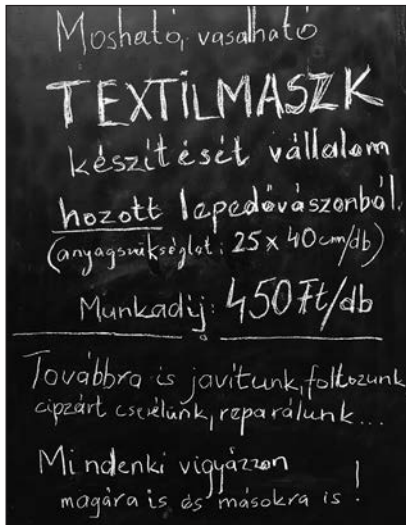 Mosható, vasalható
TEXTILMASZK
készítését vállalom
hozott lepedővászonból.
(anyagszükséglet: 25 x 40 cm/db)
Munkadíj: 450 Ft/db
Továbbra is javítunk, foltozunk
cipzárt cserélünk, reparálunk...
Mindenki vigyázzon
magára is és másokra is!